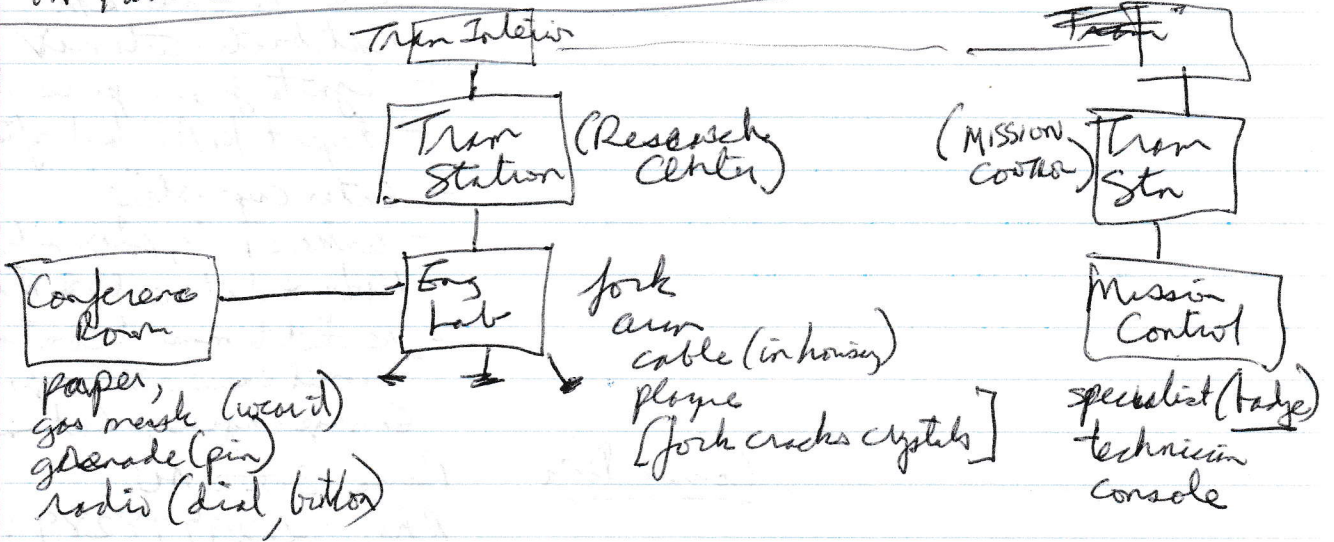 Tram Interior
Tram
Station
(Research
Center)
(MISSION
CONTROL)
Tram
Stn
Conference
Room
Eng
Lab
fork
arm
cable (in housing)
plaque
[fork cracks crystals]
Mission
Control
paper,
gas mask (wear it)
grenade (pin)
radio (dial, button)
specialist (badge)
technician
console